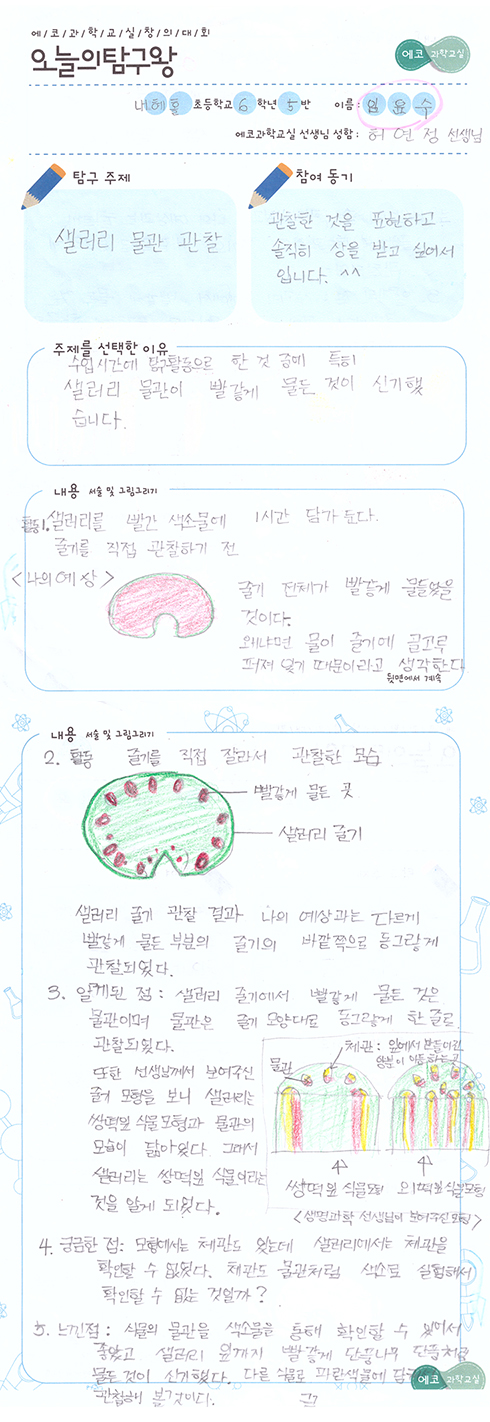 에/코/과/학/교/실/창/의/대/회
오늘의탐구왕
에코 과학교실
내혜홀 초등학교 6 학년 5 반 이름 : 임윤수
에코과학교실 선생님 성함 : 허연정 선생님
탐구 주제
샐러리 물관 관찰
참여 동기
관찰한 것을 표현하고
솔직히 상을 받고 싶어서
입니다. ^^
주제를 선택한 이유
수업시간에 탐구활동으로 한 것 중에 특히
샐러리 물관이 빨갛게 물든 것이 신기했
습니다.
내용 서술 및 그림그리기
활동1. 샐러리를 빨간 색소물에 1시간 담가 둔다.
줄기를 직접 관찰하기 전
<나의 예상>
줄기 전체가 빨갛게 물들었을
것이다.
왜냐면 물이 줄기에 골고루
퍼져 있기 때문이라고 생각한다
뒷면에서 계속
내용 서술 및 그림그리기
2. 활동 줄기를 직접 잘라서 관찰한 모습
빨갛게 물든 곳
샐러리 줄기
샐러리 줄기 관찰 결과 나의 예상과는 다르게
빨갛게 물든 부분의 줄기의 바깥쪽으로 둥그랗게
관찰되었다.
3. 알게된 점 : 샐러리 줄기에서 빨갛게 물든 것은
물관이며 물관은 줄기 모양대로 둥그랗게 한 줄로
관찰되었다.
또한 선생님께서 보여주신
줄기 모형을 보니 샐러리는
쌍떡잎 식물모형과 물관의
모습이 닮아있다. 그래서
샐러리는 쌍떡잎 식물이라는
것을 알게 되었다.
물관
체관 : 잎에서 만들어진
양분이 이동하는 곳
쌍떡잎 식물모형 외떡잎 식물모형
<생명과학 선생님이 보여주신 모형>
4. 궁금한 점 : 모형에서는 체관도 있는데 샐러리에서는 체관을
확인할 수 없었다. 체관도 물관처럼 색소로 실험해서
확인할 수 없는 것일까?
5. 느낀점 : 식물의 물관을 색소물을 통해 확인할 수 있어서
좋았고 샐러리 잎까지 빨갛게 단풍나무 단풍처럼
물든것이 신기했다. 다른 식물로 파란색물에 담가
관찰해 볼것이다. 끝
에코 과학교실